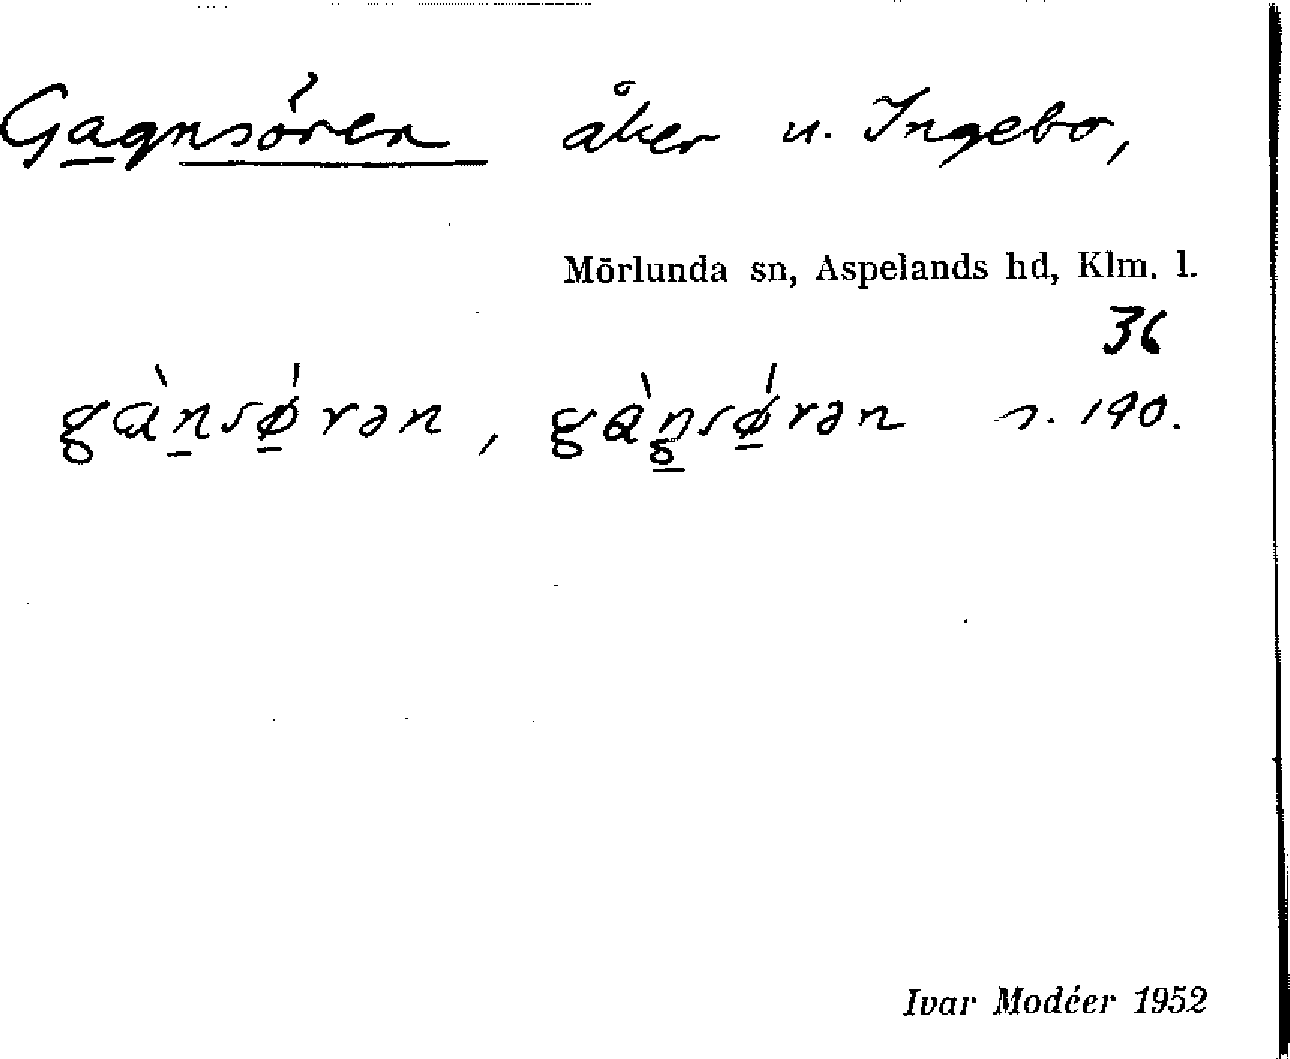 Gagnsören åker u. Ingebo,
Mörlunda sn, Aspelands hd, Klm. l.
36
gànsǿrən, gàŋsǿrən s. 190.
Ivar Modéer 1952